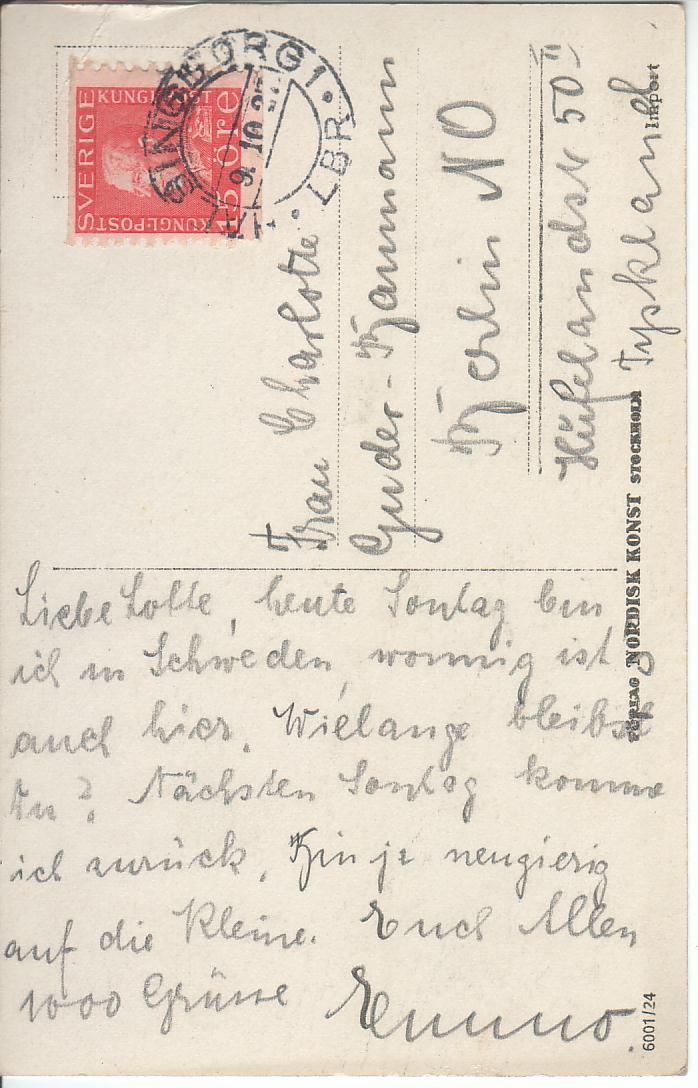 SVERIGE
KUNGL-POST
KUNGL-POST
15 öre
HÄLSINGBORG 1 · LBR ·
9. 10. 27
Frau Charlotte
Guder-Hammann
Berlin NO
Hufelandstr 50 II
Tyskland
Import
FÖRLAG NORDISK KONST STOCKHOLM
6001/24
Liebe Lotte, heute Sontag bin
ich in Schweden, wonnig ist
auch hier. Wielange bleibst
Du? Nächsten Sontag komme
ich zurück. Bin ja neugierig
auf die Kleine. Euch Allen
1000 Grüsse